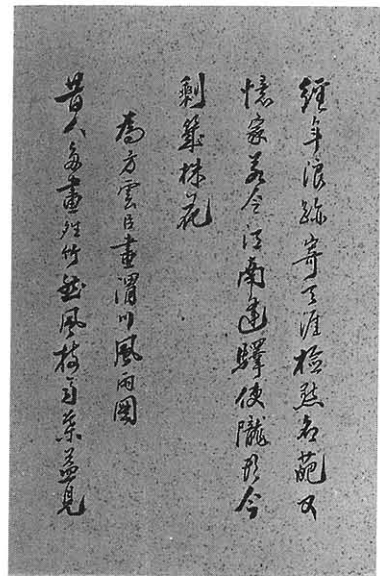 經年浪跡寄天涯檢點名葩又
憶家若令江南逢驛使隴頭今
剩幾株花
為方雲臣畫渭川風雨圖
昔人多畫竹然風枝雨葉益見